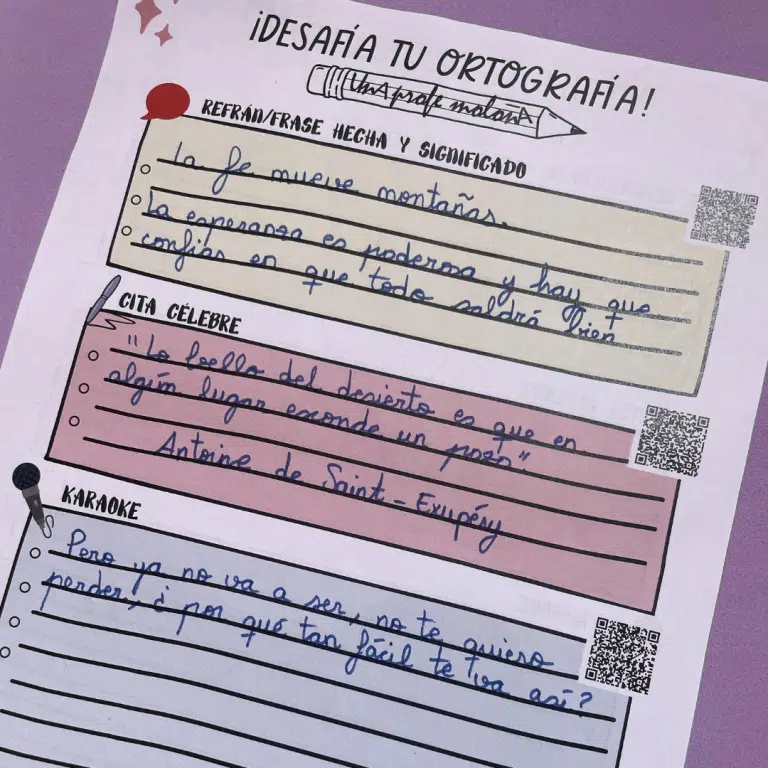 ¡DESAFÍA TU ORTOGRAFÍA!
Una profe molona
REFRÁN/FRASE HECHA Y SIGNIFICADO
la fe mueve montañas.
La esperanza es poderosa y hay que
confiar en que todo saldrá bien
CITA CÉLEBRE
"Lo bello del desierto es que en
algún lugar esconde un pozo"
Antoine de Saint-Exupéry
KARAOKE
Pero ya no va a ser, no te quiero
perder, ¿por qué tan fácil te va así?